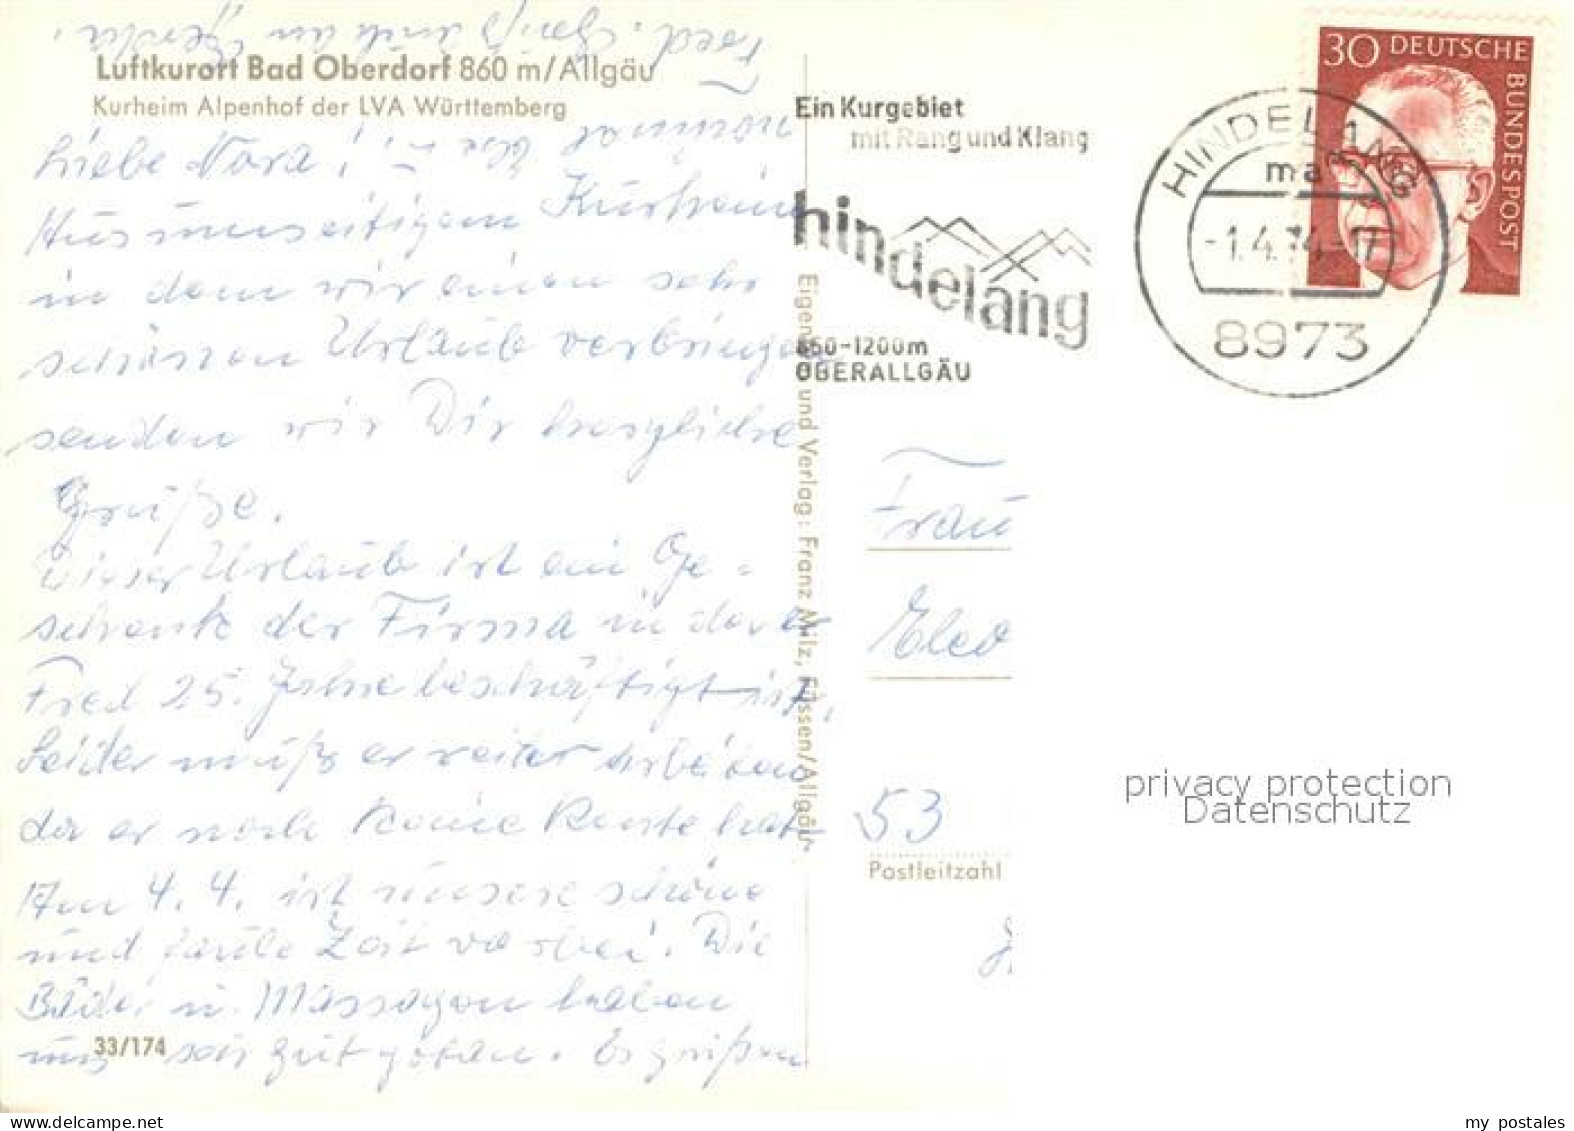 Luftkurort Bad Oberdorf 860 m/Allgäu
Kurheim Alpenhof der LVA Württemberg
Liebe Nora!
Aus unserigem Kurheim
in dem wir einen sehr
schönen Urlaub verbringen
senden wir Dir herzliche
Grüße.
Dieser Urlaub ist ein Ge=
schenk der Firma in der er
Fred 25. Jahre beschäftigt ist,
Leider muß er weiter arbeiten
da er noch keine Rente hat
Am 4. 4. ist unsere schöne
und faule Zeit vorbei. Die
Bäder u. Massagen haben
uns sehr gut getan. Es grüßen
33/174
Eigentum und Verlag: Franz Milz, Füssen/Allgäu
Ein Kurgebiet
mit Rang und Klang
hindelang
850-1200m
OBERALLGÄU
HINDELANG
ma
-1.4.74-17
8973
30 DEUTSCHE
BUNDESPOST
Frau
53
Postleitzahl
privacy protection
Datenschutz
my postales